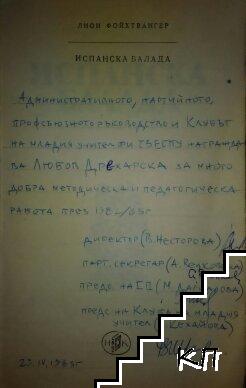 ЛИОН ФОЙХТВАНГЕР
ИСПАНСКА БАЛАДА
Административното, партийното,
профсъюзното ръководство и Клубът
на младия учител при
награжда-
ва Любов Драхарска за много
добра методическа и педагогическа
работа през 1984/85г.
Директор: (В. Несторова)
Парт. секретар (А.
Предс. на СП (М.
Предс. на Клуба на младия
учител Кехайова)
КП